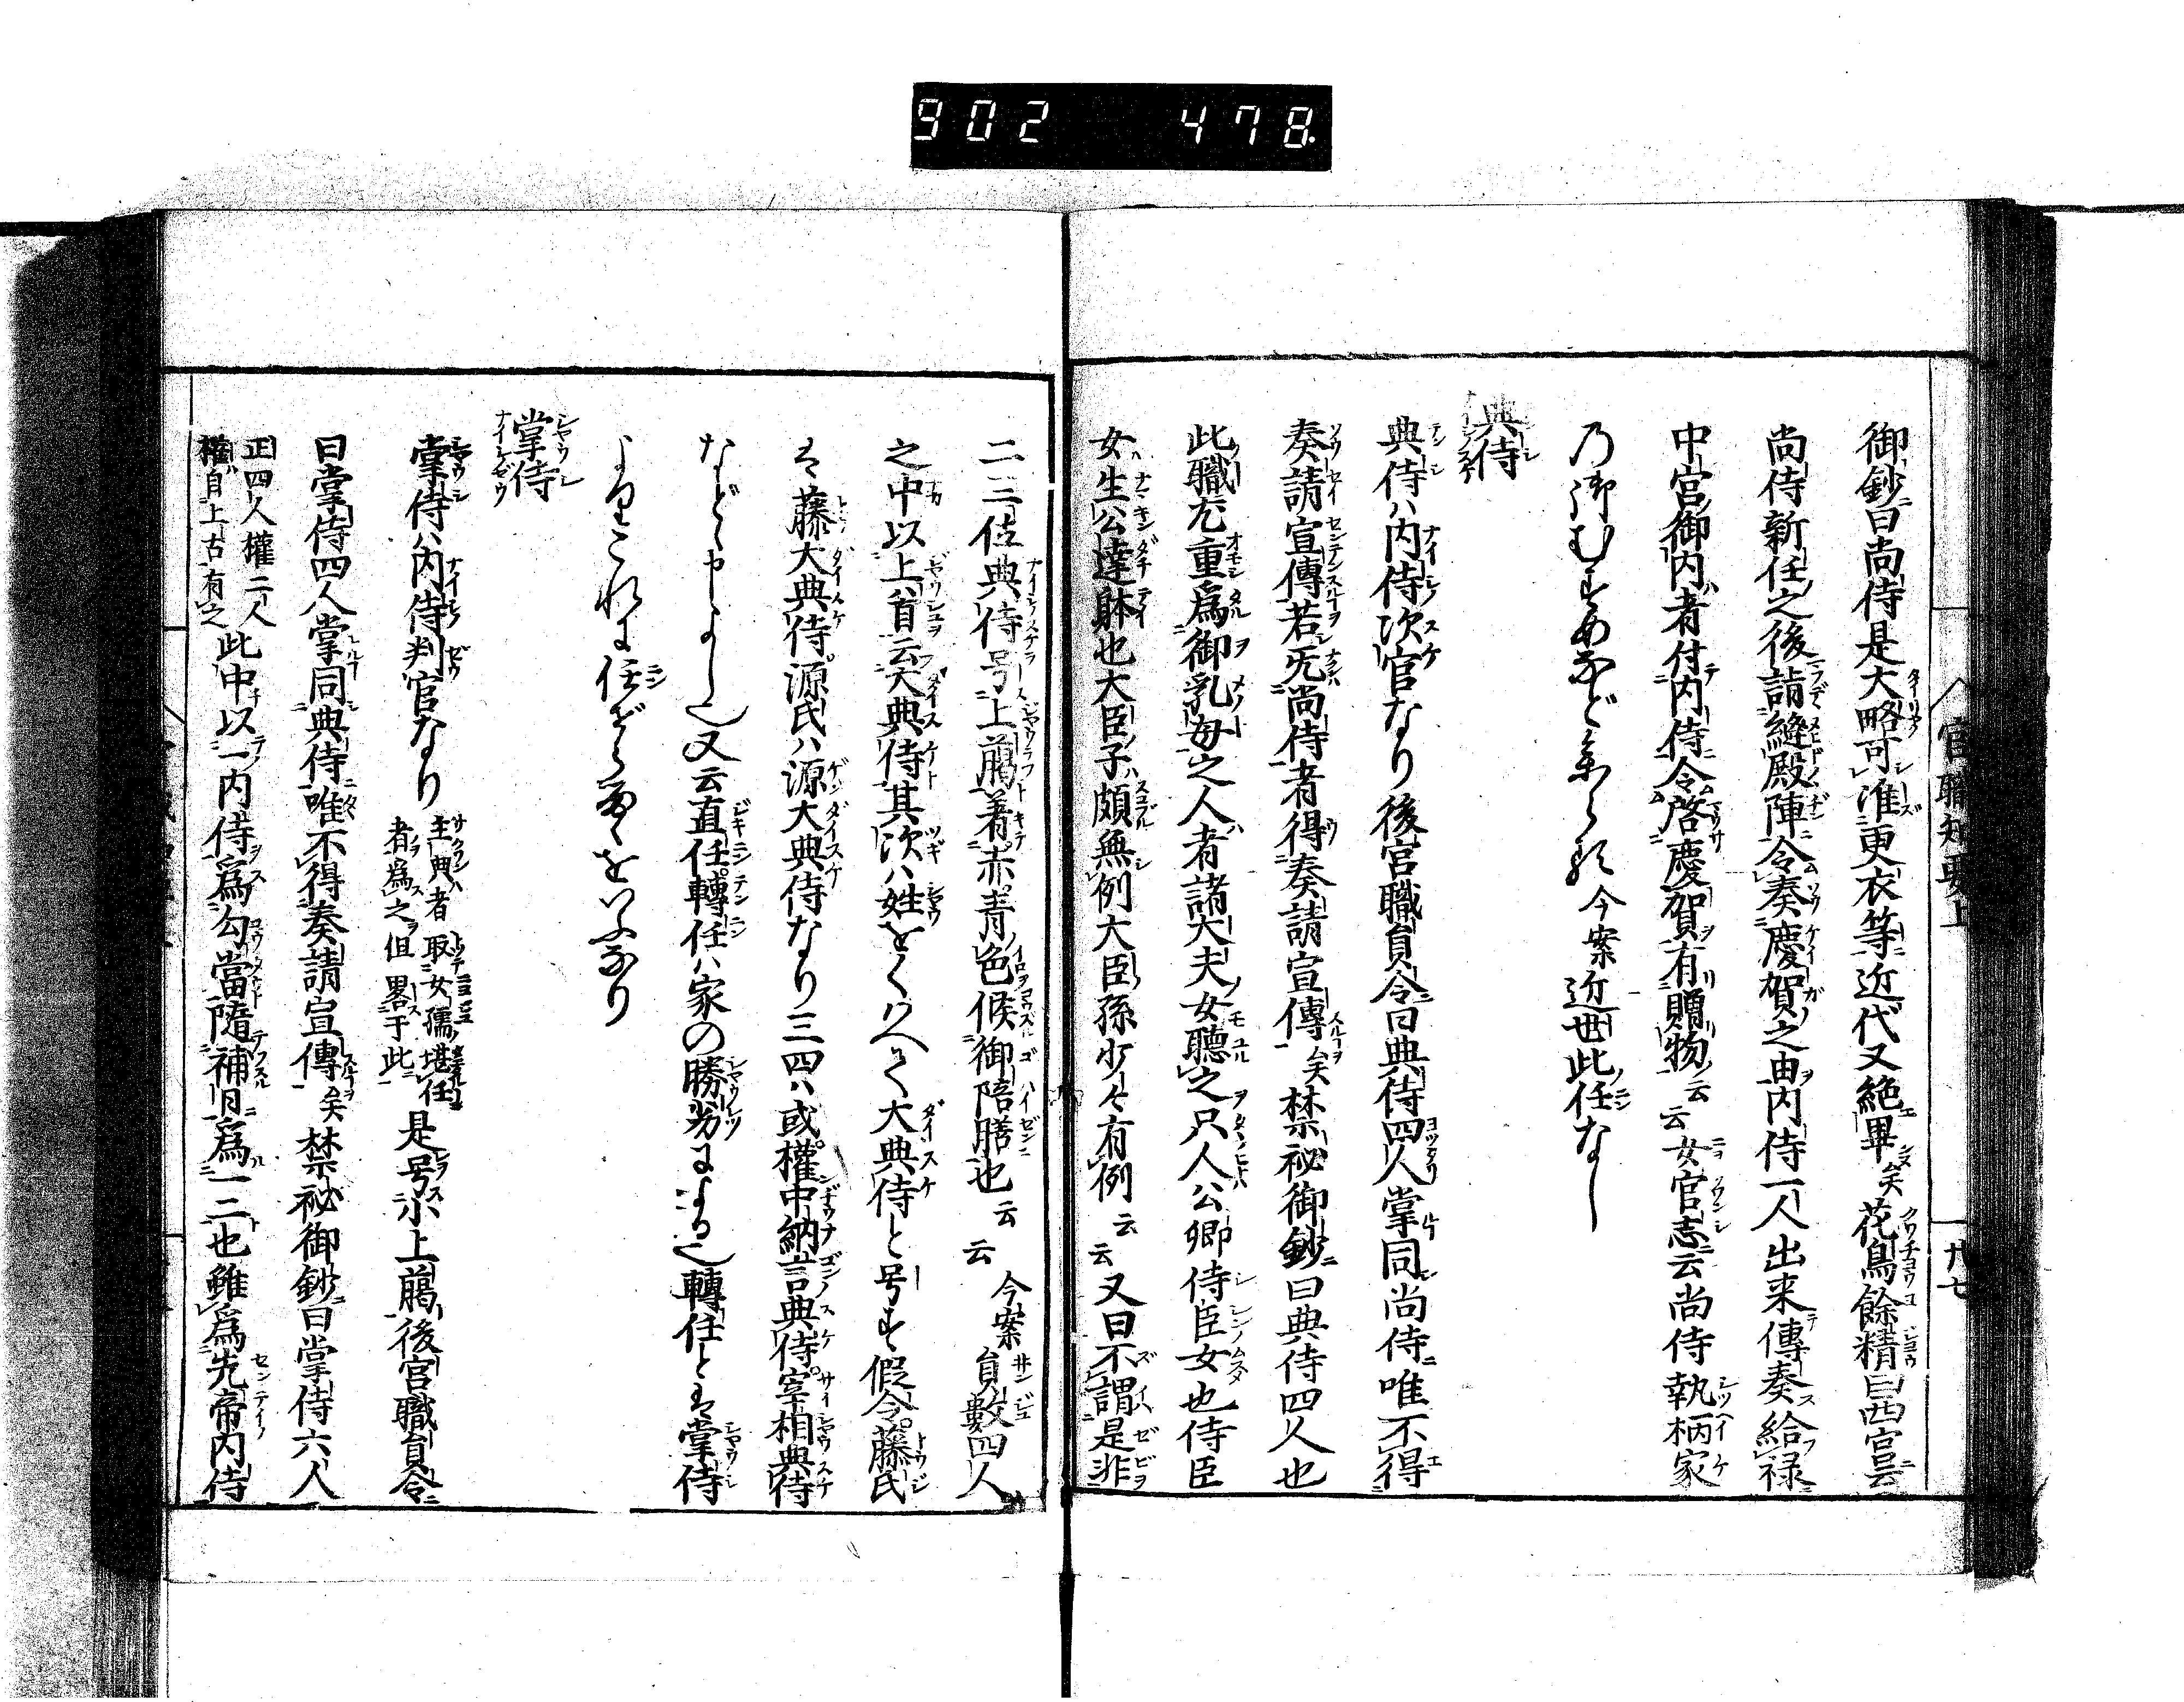 902 478
官職知要上
御鈔曰尚侍是大略可准更衣等近代又絶畢矣花鳥餘精曰西宮云
尚侍新任之後請縫殿陣令奏慶賀之由内侍一人出来傳奏給禄
中宮御内者付内侍令啓慶賀有贈物云云女官志云尚侍執柄家
乃御むすめなど参らる今案近世此任なし
典侍
典侍ハ内侍次官なり後宮職員令曰典侍四人掌同尚侍唯不得
奏請宣傳若无尚侍者得奏請宣傳矣禁祕御鈔曰典侍四人也
此職尤重爲御乳母之人者諸大夫女聴之只人公卿侍臣女也侍臣
女生公達躰也大臣子頗無例大臣孫少々有例云云又曰不謂是非
二三位典侍号上﨟着赤青色候御陪膳也云云今案員數四人
之中以上首云大典侍其次ハ姓をくハへて大典侍と号す假令藤氏
は藤大典侍源氏ハ源大典侍なり三四ハ或權中納言典侍宰相典侍
などゝ申よし也又云直任轉任ハ家の勝劣による也轉任とは掌侍
よりこれに任ぜらるゝをいふなり
掌侍
掌侍ハ内侍判官なり主典者取女孺堪任
者爲之但畧于此是号小上﨟後宮職員令
曰掌侍四人掌同典侍唯不得奏請宣傳矣禁祕御鈔曰掌侍六人
正四人權二人
權自上古有之此中以一内侍爲勾當隨補日爲一二也雖爲先帝内侍